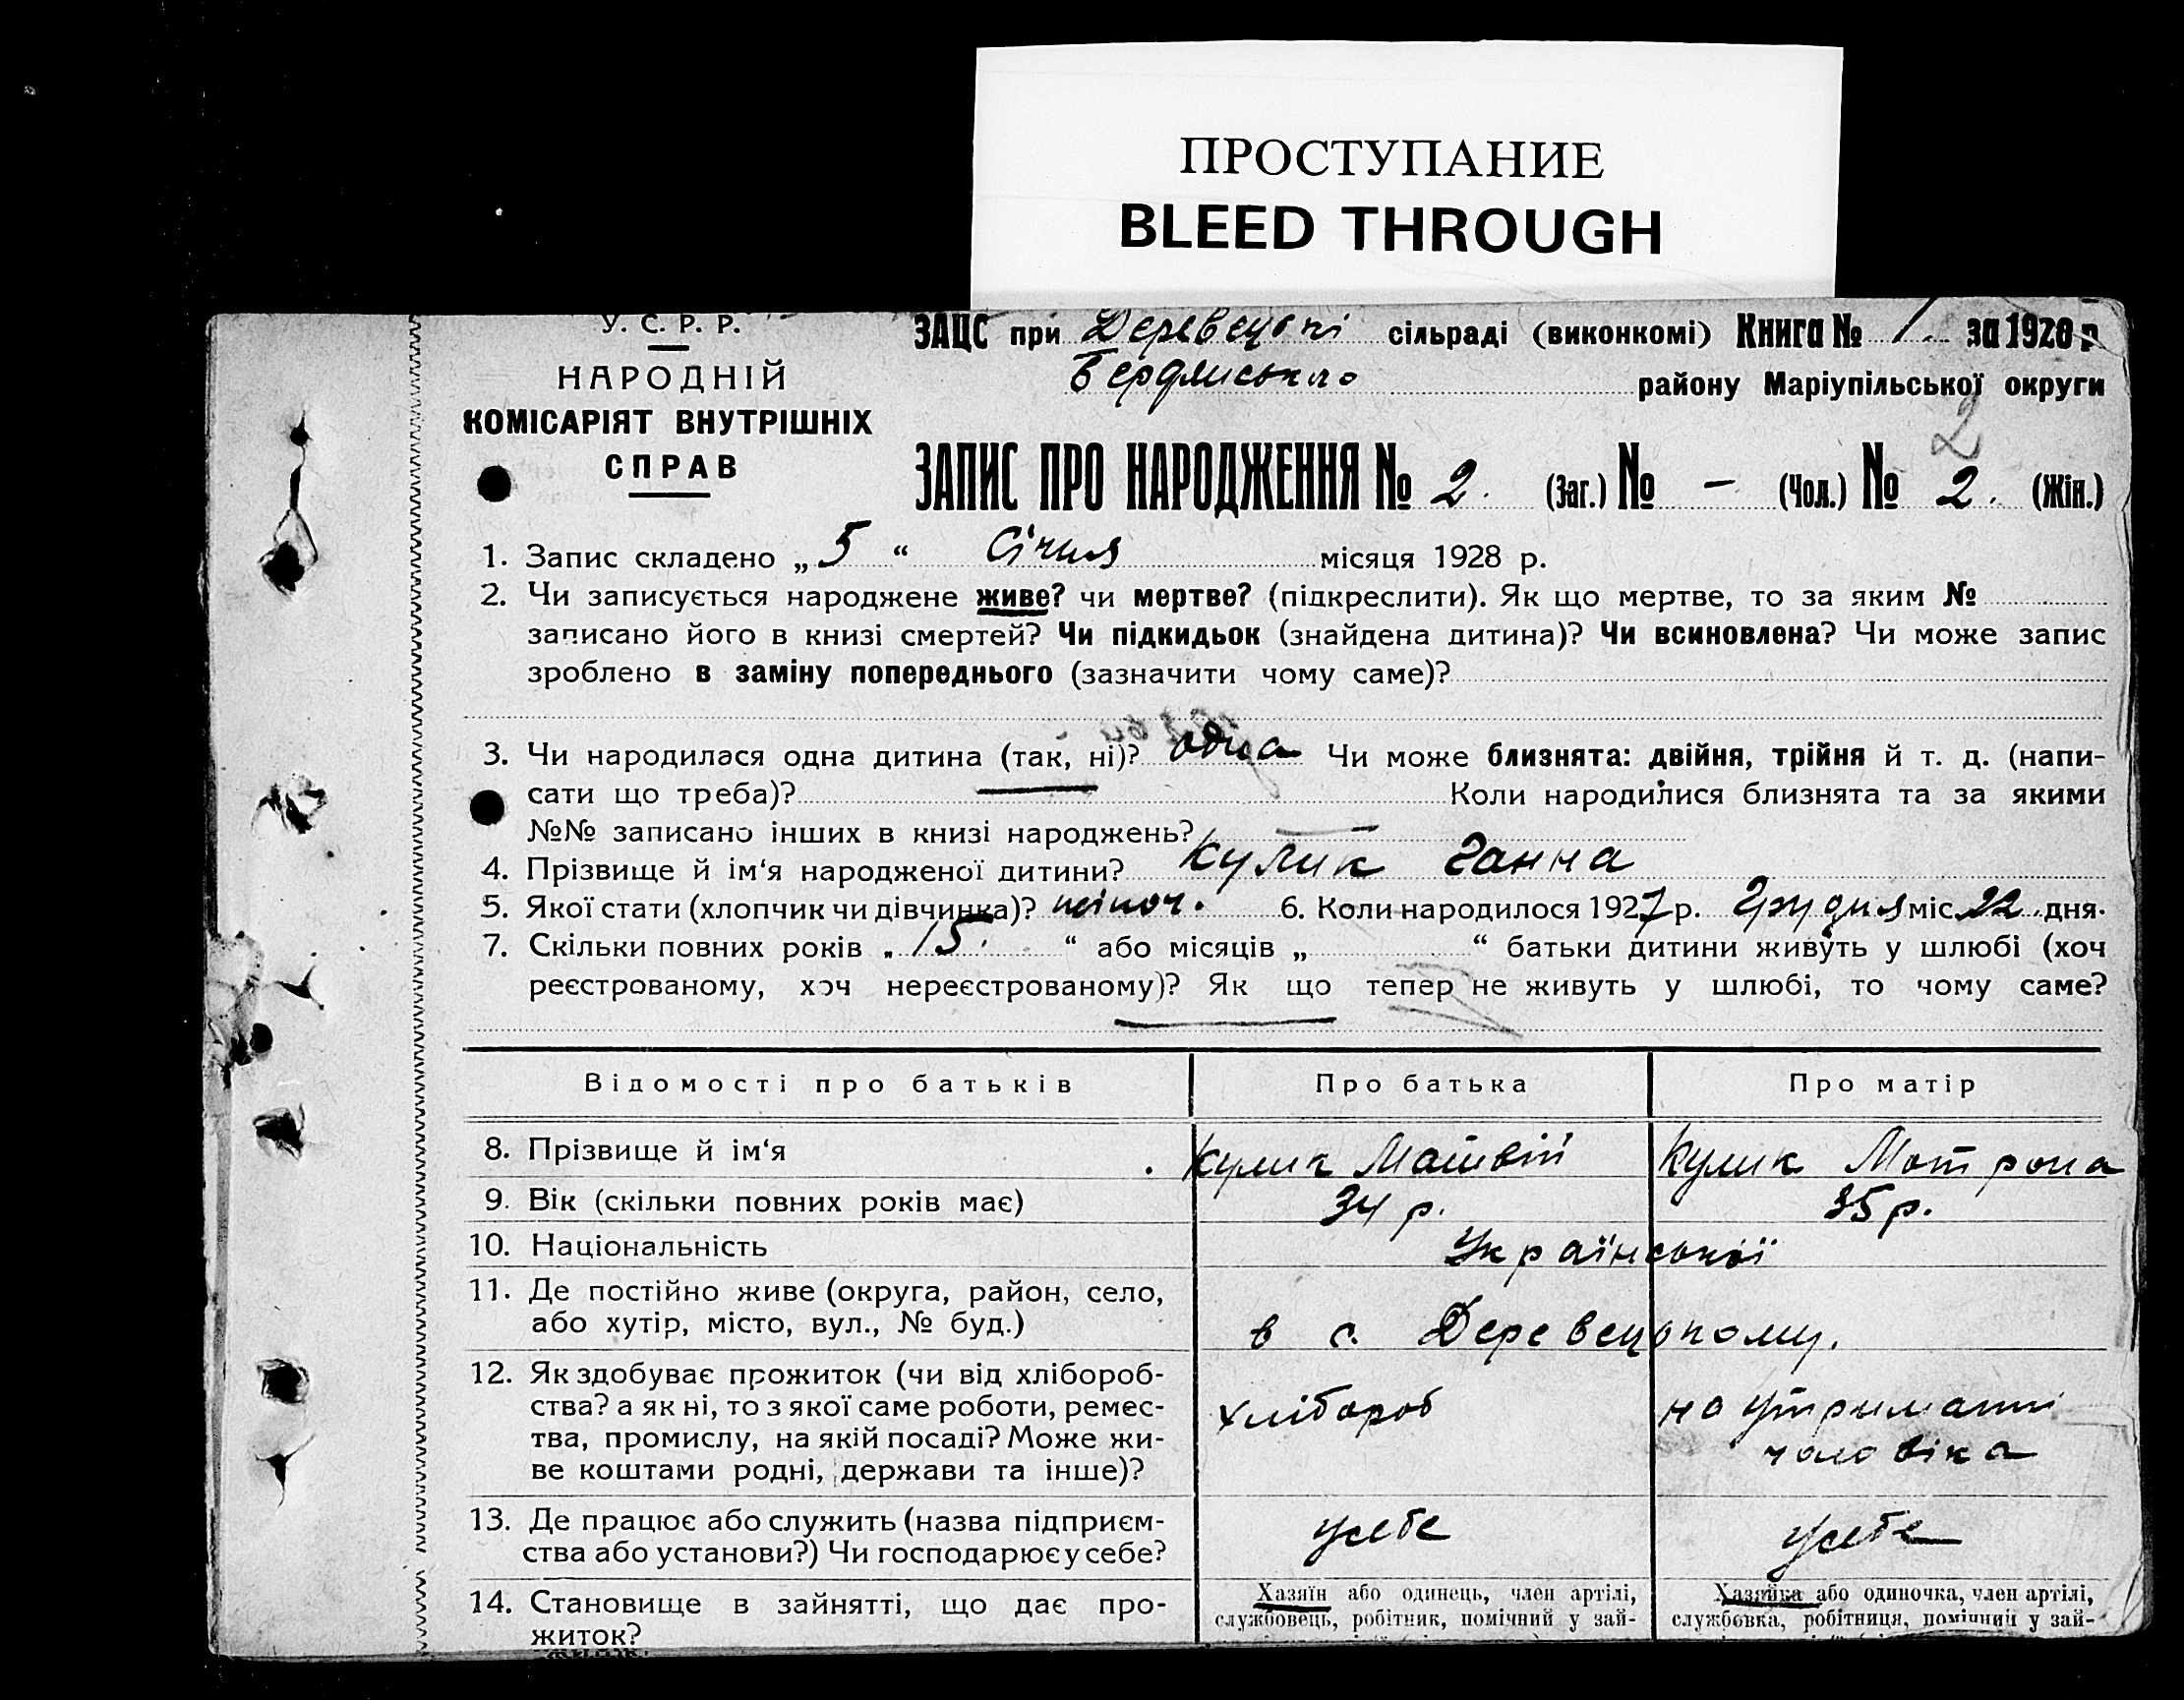 ПРОСТУПАНИЕ
BLEED THROUGH
У. С. Р. Р.
НАРОДНІЙ
КОМІСАРІЯТ ВНУТРІШНІХ
СПРАВ
ЗАЦС при сільраді (виконкомі) Книга № 1 за 1928 р
Бердянського району Маріупільської округи
2
ЗАПИС ПРО НАРОДЖЕННЯ № 2. (Заг.) № – (Чол.) № 2. (Жін.)
1. Запис складено „ 5 “ Січня місяця 1928 р.
2. Чи записується народжене живе? чи мертве? (підкреслити). Як що мертве, то за яким №
записано його в книзі смертей? Чи підкидьок (знайдена дитина)? Чи всиновлена? Чи може запис
зроблено в заміну попереднього (зазначити чому саме)?
3. Чи народилася одна дитина (так, ні)? одна Чи може близнята: двійня, трійня й т. д. (напи-
сати що треба)? Коли народилися близнята та за якими
№№ записано інших в книзі народжень? —
4. Прізвище й ім‘я народженої дитини? Кулик Ганна
5. Якої стати (хлопчик чи дівчинка)? жіноч. 6. Коли народилося 1927 р. Грудня міс. 22 дня.
7. Скільки повних років „ 15. “ або місяців „ “ батьки дитини живуть у шлюбі (хоч
реєстрованому, хоч нереєстрованому)? Як що тепер не живуть у шлюбі, то чому саме?
Відомості про батьків Про батька Про матір
8. Прізвище й ім‘я Кулик Матвій Кулик Мотрона
9. Вік (скільки повних років має) 34 р. 35 р.
10. Національність Української
11. Де постійно живе (округа, район, село,
або хутір, місто, вул., № буд.) в с.
12. Як здобуває прожиток (чи від хлібороб-
ства? а як ні, то з якої саме роботи, ремес- хлібороб на утриманні
тва, промислу, на якій посаді? Може жи- чоловіка
ве коштами родні, держави та інше)?
13. Де працює або служить (назва підприєм- усебе усебе
ства або установи?) Чи господарює у себе?
14. Становище в зайнятті, що дає про- Хазяїн або одинець, член артілі, Хазяйка або одиночка, член артілі,
житок? службовець, робітник, помічний у зай- службовка, робітниця, помічний у зай-